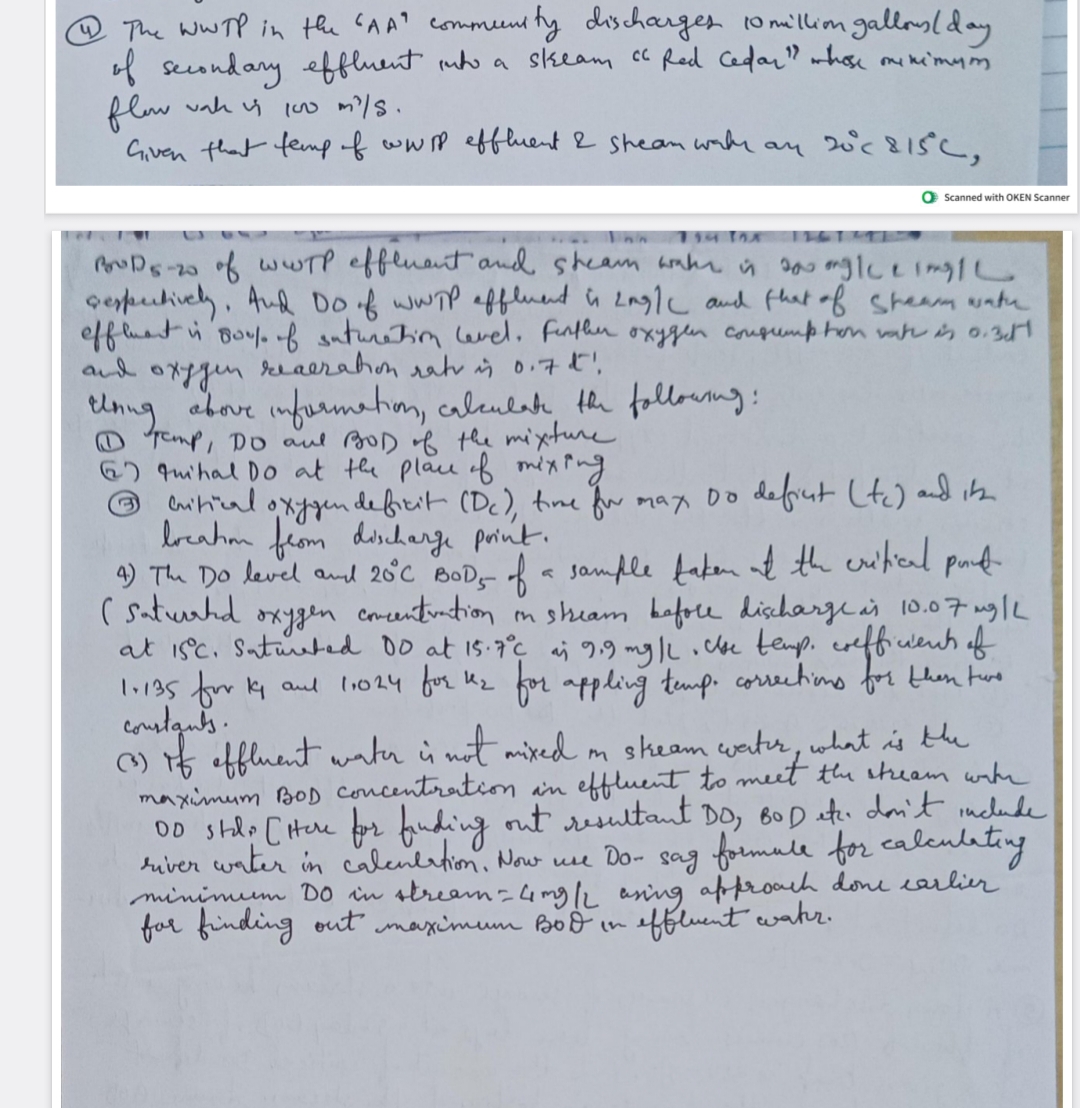 ④ The WWTP in the "AA" community discharges 10 million gallons/day
of secondary effluent into a stream "Red Cedar" whose minimum
flow rate is 100 m³/s.
Given that temp of WWTP effluent & stream water are 20°C & 15°C,
Scanned with OKEN Scanner
BOD5-20 of WWTP effluent and stream water is 200 mg/L & 1 mg/L
respectively. And DO of WWTP effluent is 2 mg/L and that of stream water
effluent is 80% of saturation level. Further oxygen consumption rate is 0.3d⁻¹
and oxygen reaeration rate is 0.7 d⁻¹.
Using above information, calculate the following:
① Temp, DO and BOD of the mixture
② Initial DO at the place of mixing
③ Critical oxygen deficit (Dc), time for max DO deficit (tc) and its
location from discharge point.
4) The DO level and 20°C BOD5 of a sample taken at the critical point
(Saturated oxygen concentration in stream before discharge is 10.07 mg/L
at 15°C. Saturated DO at 15.7°C is 9.9 mg/L. Use temp. coefficients of
1.135 for K1 and 1.024 for K2 for appling temp. corrections for then two
constants.
(5) If effluent water is not mixed in stream water, what is the
maximum BOD concentration in effluent to meet the stream water
DO std. [Here for finding out resultant DO, BOD etc. don't include
river water in calculation. Now use DO-sag formula for calculating
minimum DO in stream = 4 mg/L using approach done earlier
for finding out maximum BOD in effluent water.